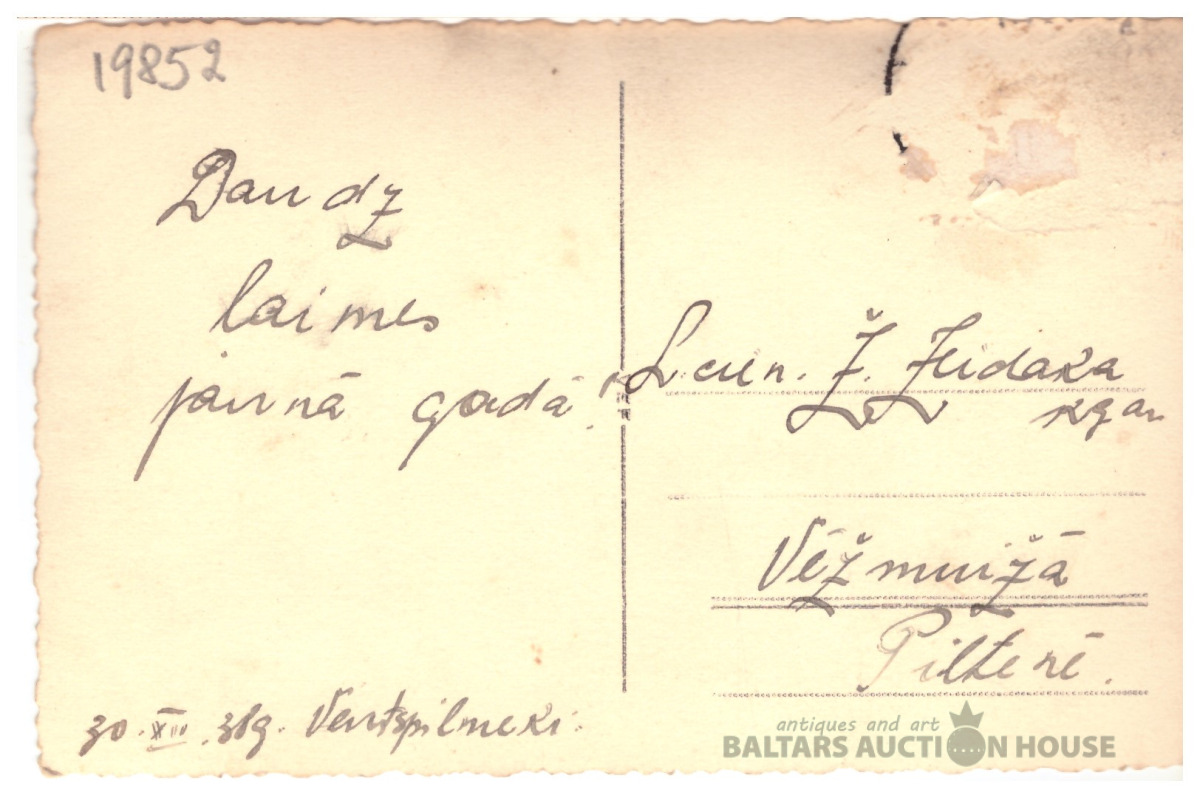 19852
Daudz
laimes
jaunā gadā!
30. XII. 38g. Ventspilnieki.
Ž. Zeidaka
kgam
Vēžmuižā
Piltenē.
antiques and art
BALTARS AUCTION HOUSE